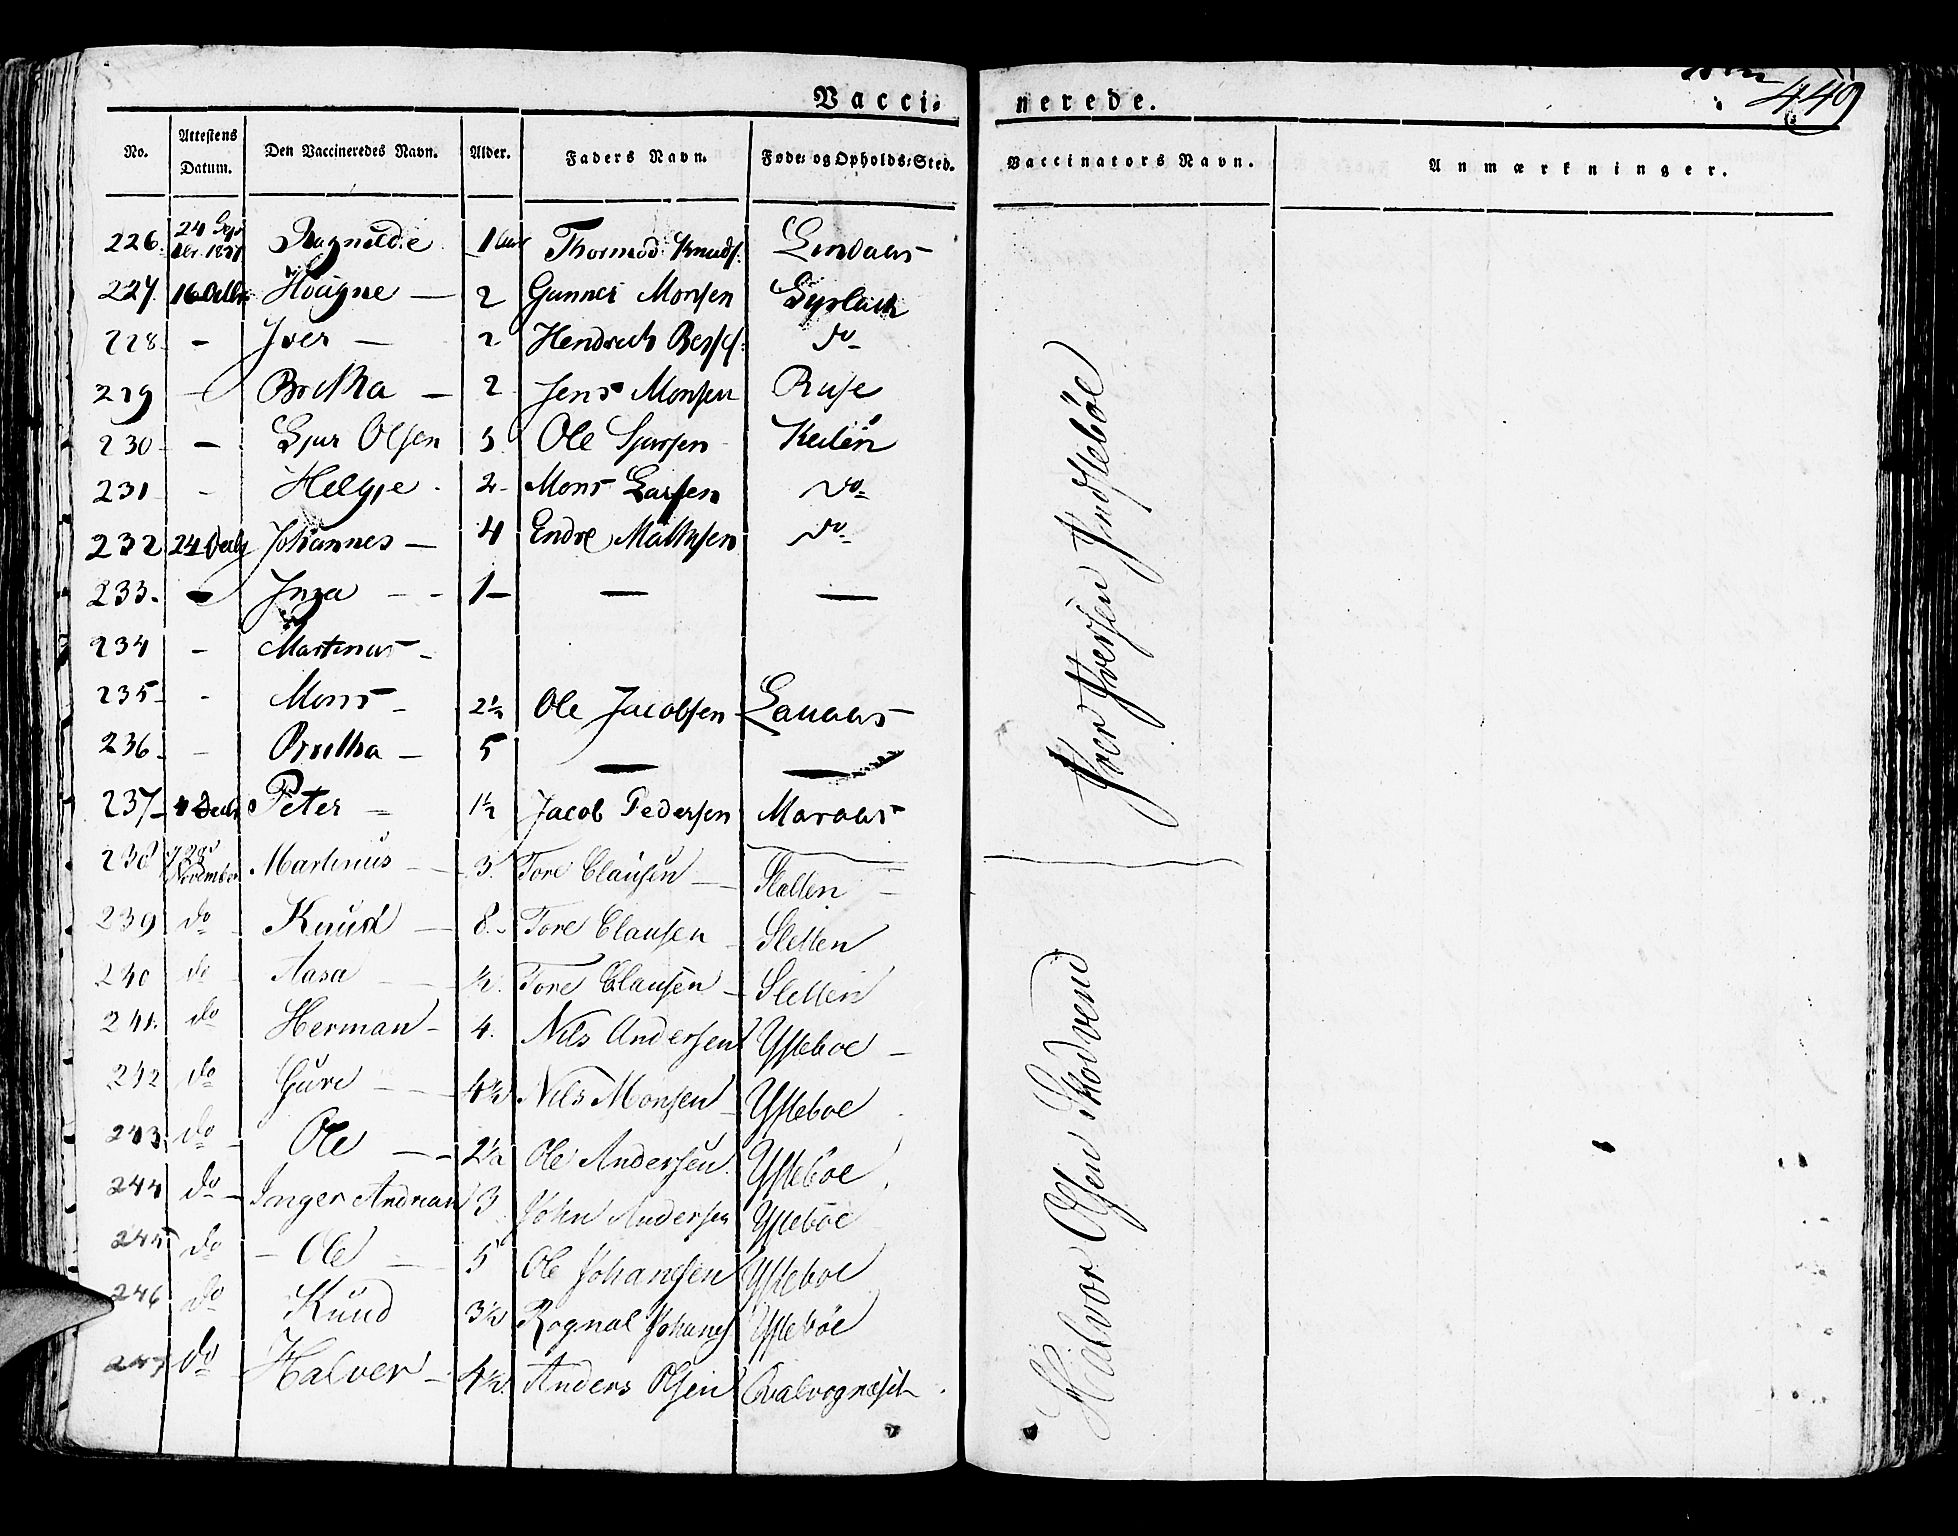 Vacci- nerede.
449
No. Attestens Datum. Den Vaccineredes Navn. Alder. Faders Navn. Føde- og Opholds-Sted. Vaccinators Navn. Anmærkninger.
226. 24 Sept Ragnilde 1 Thormod Knuds. Lindaas
227. 16 Octbr Hougne — 2 Gunner Monsen
228 - Iver — 2 Hendrich do
229 - Britha — 2 Jens Monsen
230 - Sjur Olsen 5 Ole Sjursen Keilen
231 - Helgje 2 Mons Larsen do
232 24 Johannes — 4 Endre Mathisen do
233. - — 1 — —
234 - Martinus
235 - Mons 2½ Ole Jacobsen
236 - Britha — 5 — —
237 4 Decbr Peter 1½ Jacob Pedersen Maraas
238 November Martinus 3. Tore Clausen — Sletten
239 do Knud — 8. Tore Clausen Sletten
240 do Aasa ½. Tore Clausen Sletten
241. do Herman 4. Nils Andersen Ystebøe
242 do Gure 4½ Nils Monsen Ystebøe
243 do Ole 2½ Ole Andersen Ystebøe
244 do Inger Andrea 3 John Andersen Ystebøe
245 do Ole 5 Ole Johansen Ystebøe
246 do Knud 3½ Rognal Johans Ystebøe
247 do Halver 4½ Anders Olsen
Iver Iversen Indrebøe
Halvor Olsen Skodvend